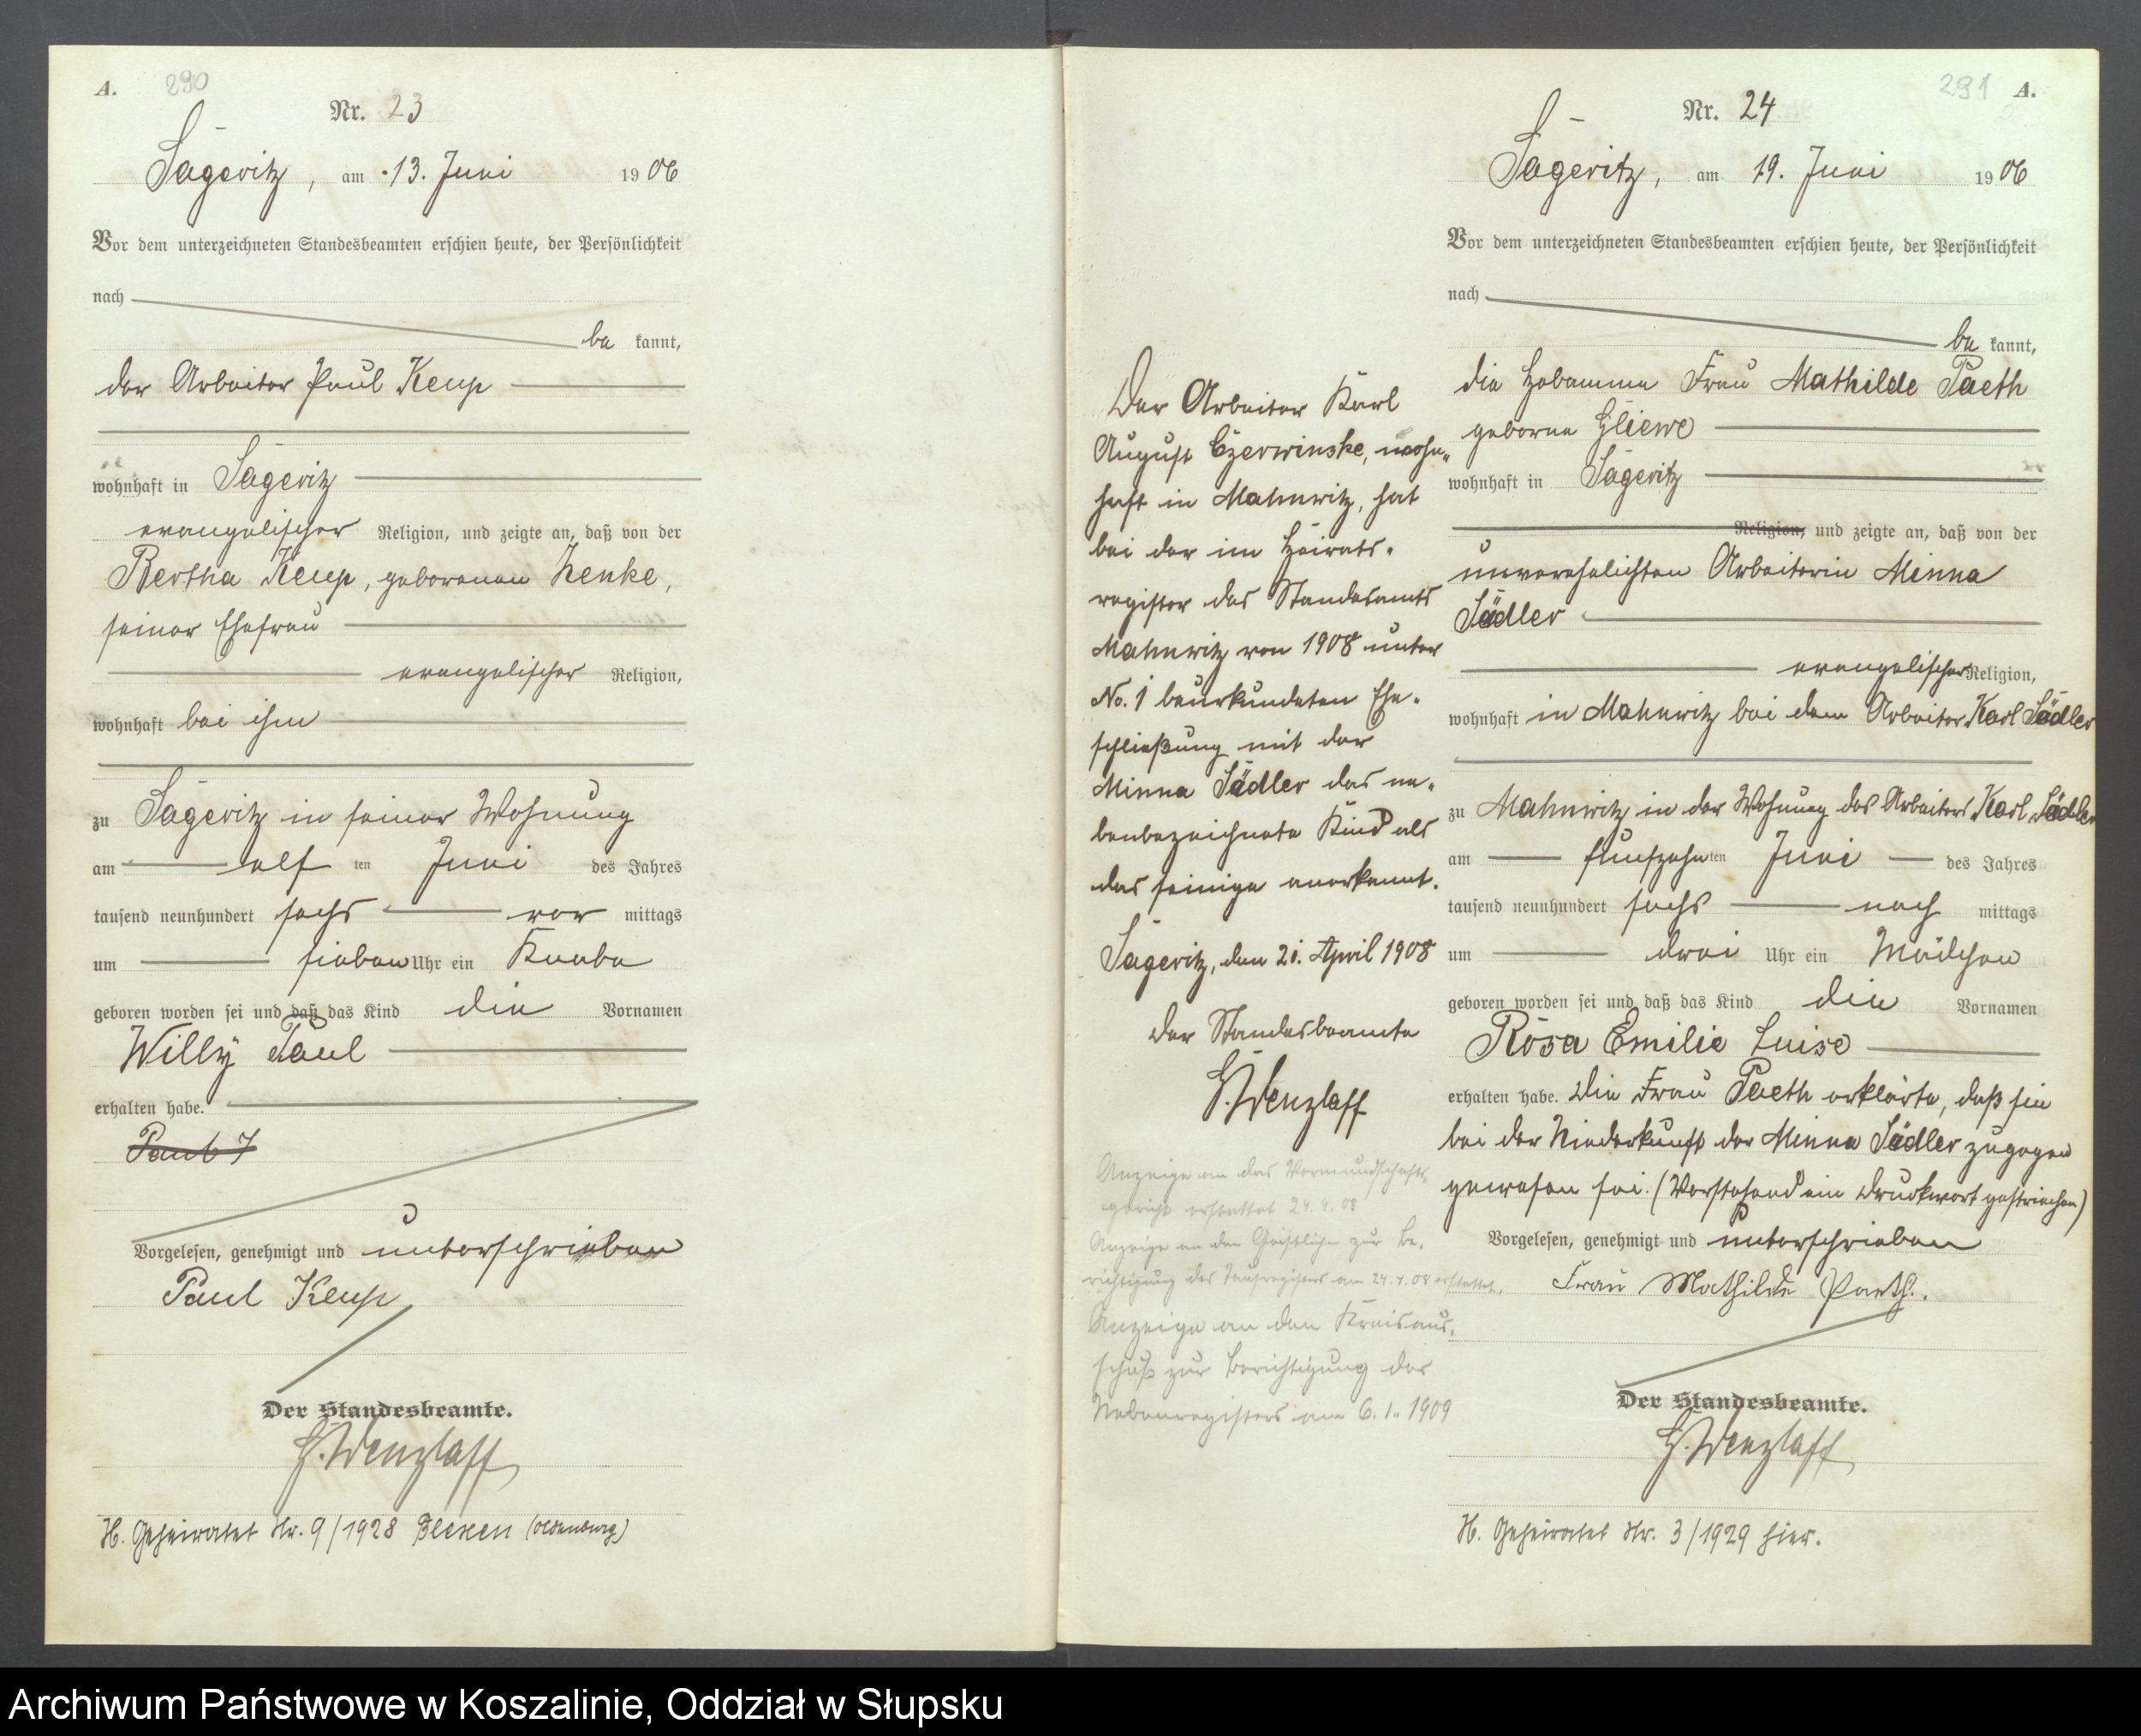 A. 290
Nr. 23
Sageritz, am 13. Juni 1906
Vor dem unterzeichneten Standesbeamten erschien heute, der Persönlichkeit
nach
be kannt,
der Arbeiter Paul Keup
wohnhaft in Sageritz
evangelischer Religion, und zeigte an, daß von der
Bertha Keup, geborenen Henke,
seiner Ehefrau
evangelischer Religion,
wohnhaft bei ihm
zu Sageritz in seiner Wohnung
am elf ten Juni des Jahres
tausend neunhundert sechs vor mittags
um sieben Uhr ein Knabe
geboren worden sei und daß das Kind die Vornamen
Willy Paul
erhalten habe.
Vorgelesen, genehmigt und unterschrieben
Paul Keup
Der Standesbeamte.
H. Wenzlaff
H. Geheiratet Nr. 9/1928 (Oldenburg)
291 A.
Nr. 24
Sageritz, am 19. Juni 1906
Vor dem unterzeichneten Standesbeamten erschien heute, der Persönlichkeit
nach
be kannt,
die Hebamme Frau Mathilde Paeth
geborne Gliewe
wohnhaft in Sageritz
Religion, und zeigte an, daß von der
unverehelichten Arbeiterin Minna
Sädler
evangelischer Religion,
wohnhaft in Mahnwitz bei dem Arbeiter Karl Sädler
zu Mahnwitz in der Wohnung des Arbeiters Karl Sädler
am fünfzehn ten Juni des Jahres
tausend neunhundert sechs nach mittags
um drei Uhr ein Mädchen
geboren worden sei und daß das Kind die Vornamen
Rosa Emilie Luise
erhalten habe. Die Frau Paeth erklärte, daß sie
bei der Niederkunft der Minna Sädler zugegen
gewesen sei. (Vorstehend ein Druckwort gestrichen)
Vorgelesen, genehmigt und unterschrieben
Frau Mathilde Paeth.
Der Standesbeamte.
H. Wenzlaff
H. Geheiratet Nr. 3/1929 hier.
Der Arbeiter Karl
August Czerwinske, wohn-
haft in Mahnwitz, hat
bei der im Heirats-
register des Standesamts
Mahnwitz von 1908 unter
No. 1 beurkundeten Ehe-
schließung mit der
Minna Sädler das ne-
benbezeichnete Kind als
das seinige anerkannt.
Sageritz, den 21. April 1908
Der Standesbeamte
H. Wenzlaff
Anzeige an das Vormundschafts-
gericht erstattet 24.4.08
Anzeige an den Geistlichen zur Be-
richtigung des Taufregisters am 24.4.08 erstattet.
Anzeige an den Kreisaus-
schuß zur Berichtigung des
Nebenregisters am 6.1. 1909
Archiwum Państwowe w Koszalinie, Oddział w Słupsku